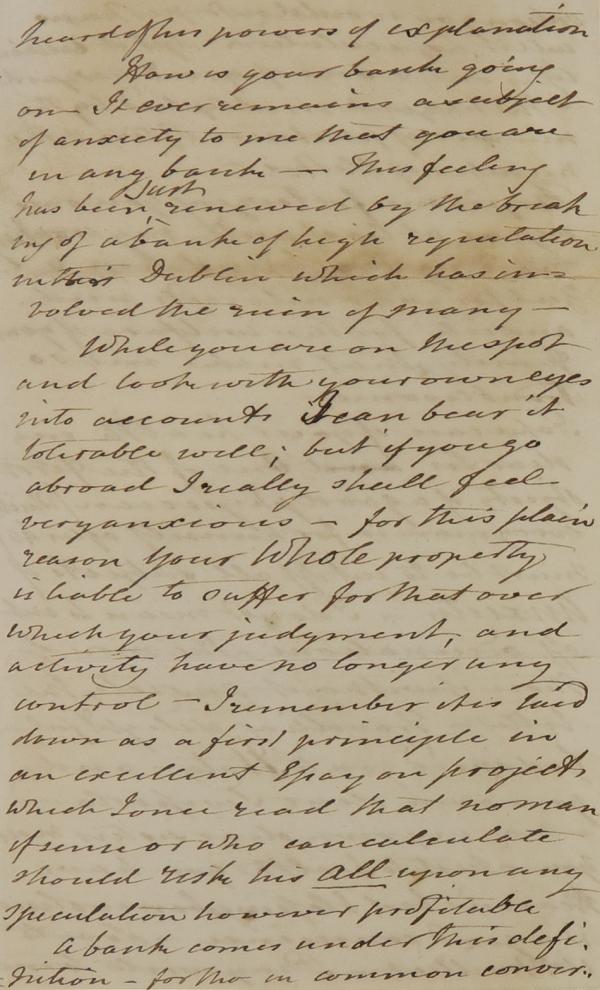 heard of his powers of explanation
How is your bank going
on — It ever remains a subject
of anxiety to me that you are
in any bank — This feeling
just
has been, renewed by the break
ing of a bank of high reputation
in Dublin which has in=
volved the ruin of many —
While you are on the spot
and look with your own eyes
into accounts I can bear it
tolerable well; but if you go
abroad I really shall feel
very anxious — for this plain
reason Your Whole property
is liable to suffer for that over
which your judgment, and
activity have no longer any
control — I remember it is laid
down as a first principle in
an excellent Essay on projects
which I once read that no man
of sense or who can calculate
should risk his All upon any
speculation however profitable
A bank comes under this defi-
nition — for tho in common conver-